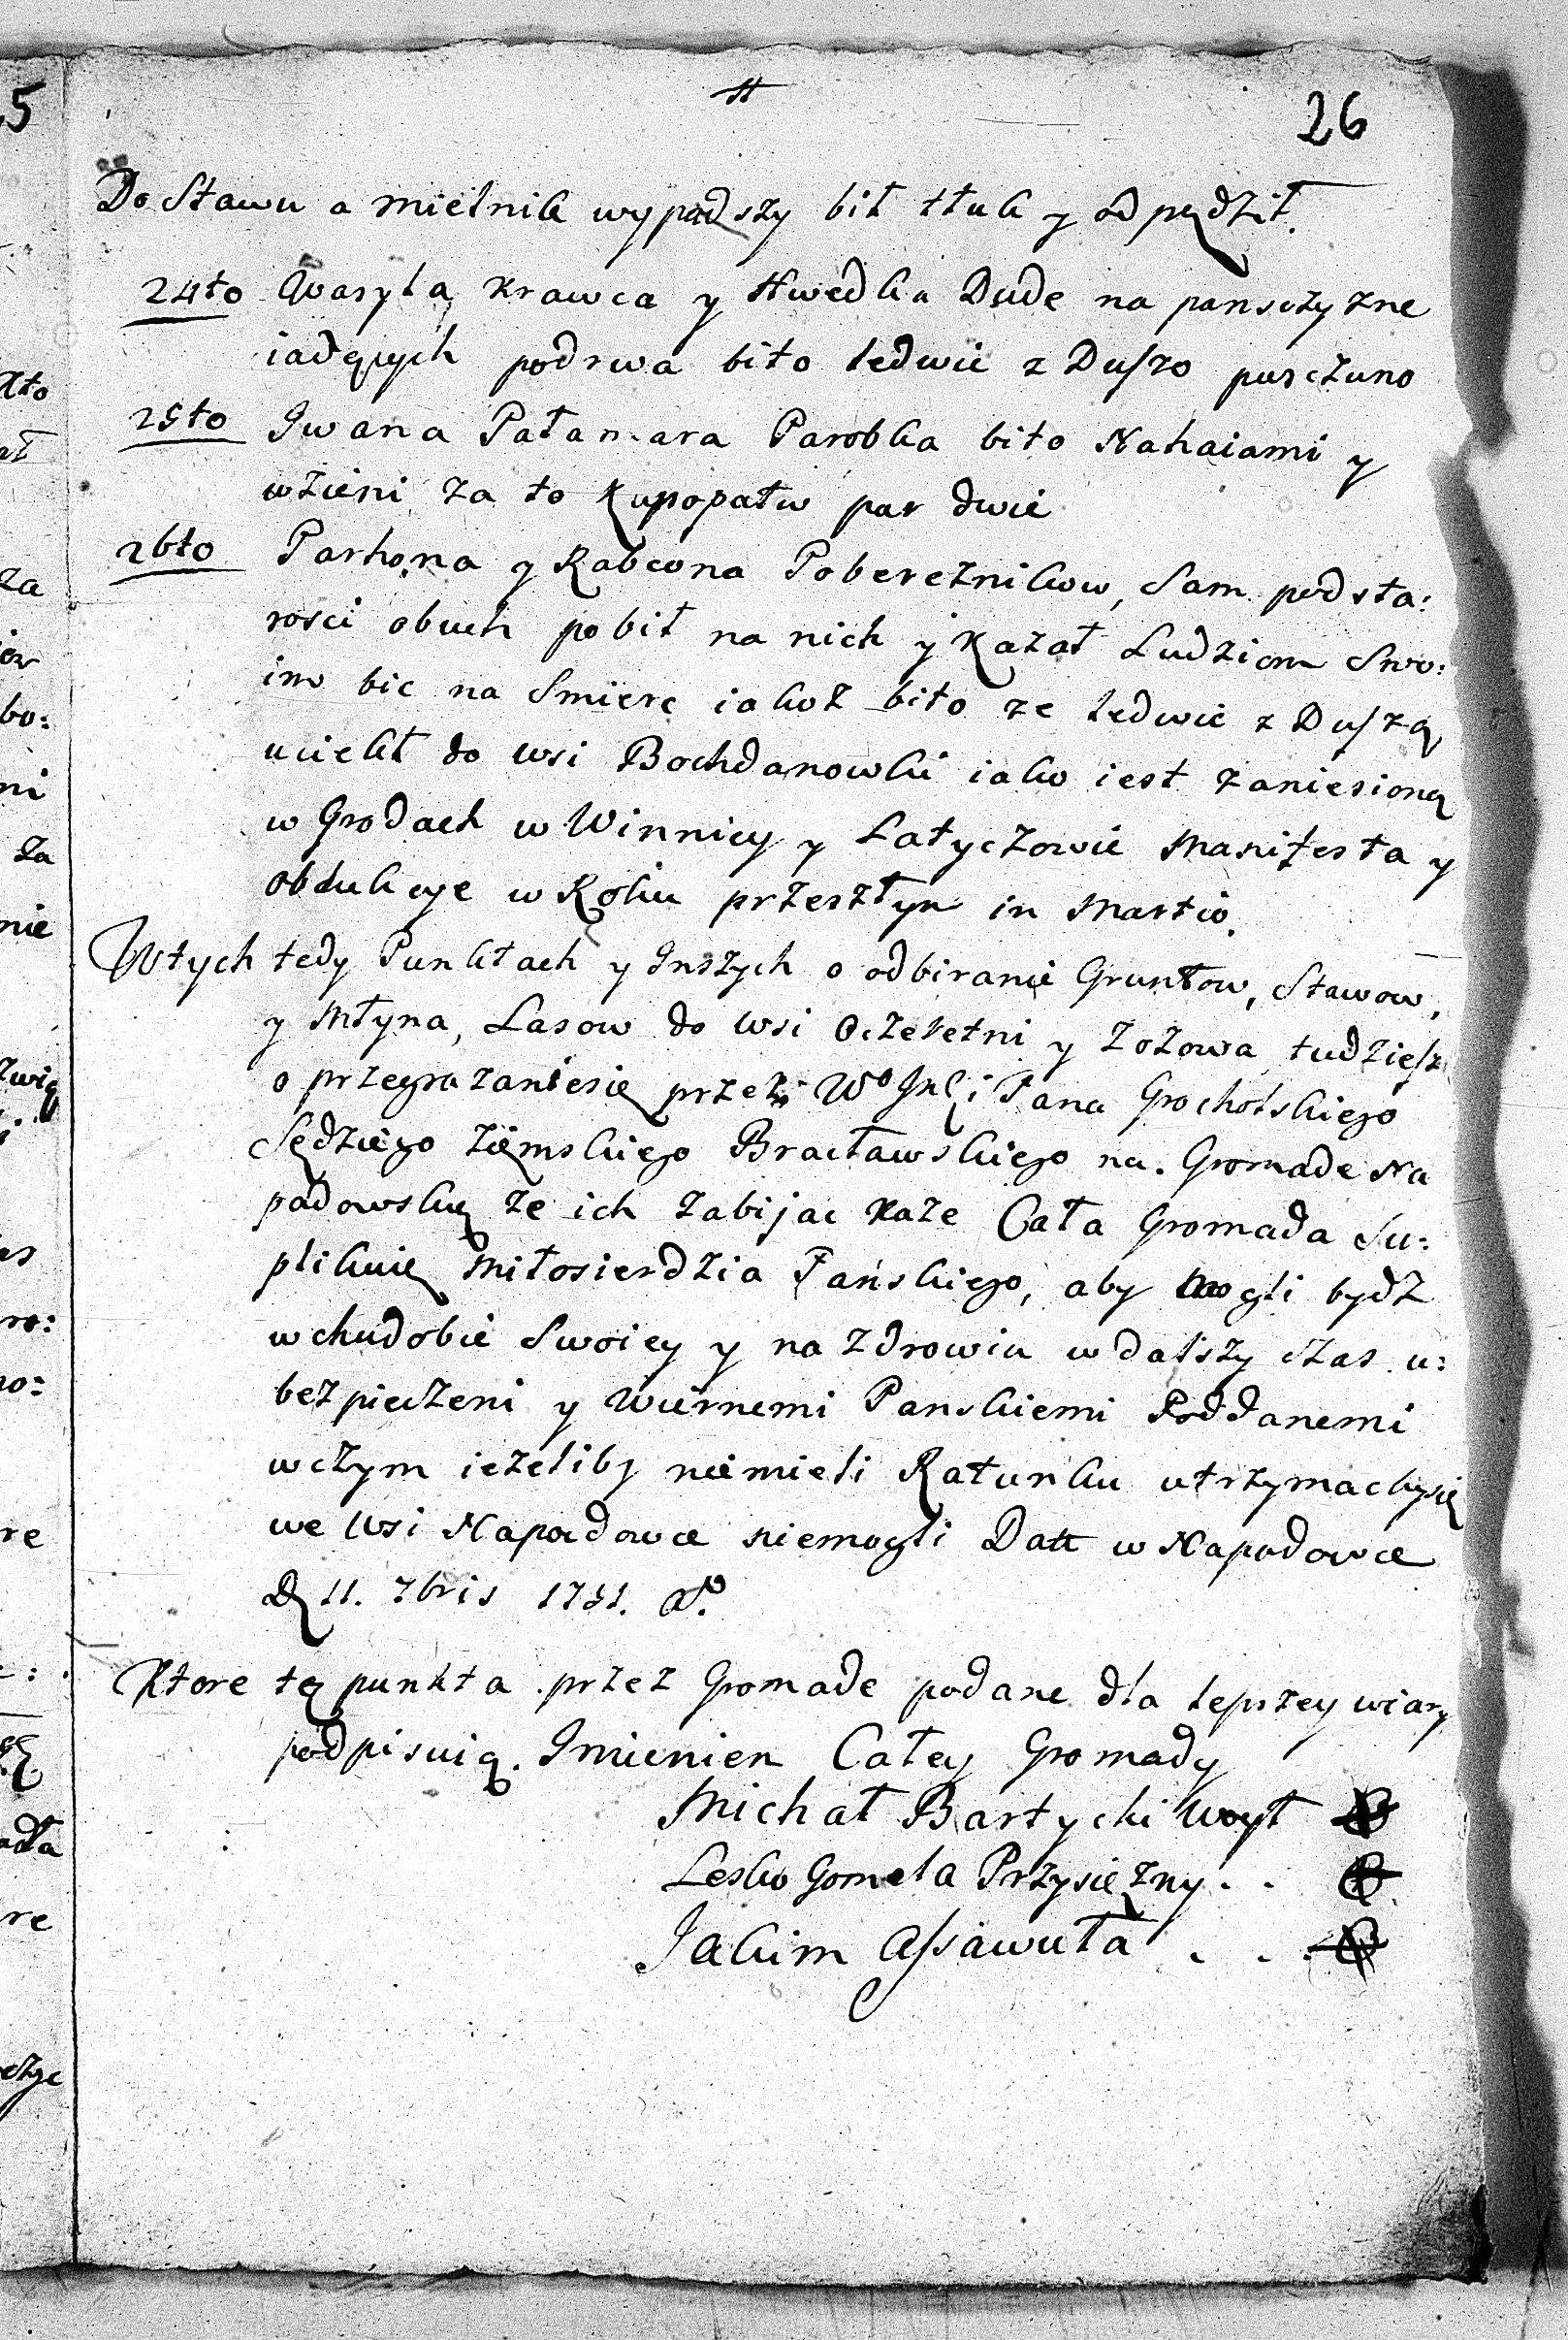 26
Do Stawu a mielnik wypadszy bił tłuk y odpędził.
24to Wasyla Krawca y Hwedka Dude na pansczyzne
iadących podrwa bito ledwie z Duszo pusczuno
25to Iwana Pałamara Parobka bito Nahaiami y
wzieni za to Kuropatw par dwie
26to Parhona y Rabcona Pobereznikow, Sam podsta:
rosci obuch pobił na nich y Kazał Ludziom Swo:
im bic na Smierc iakoz bito ze ledwie z Duszą
uciekł do wsi Bochdanowki iako iest zaniesioną
w Grodach w Winnicy y Latyczowie Manifesta y
obdukcye w Roku przeszłym in Martio.
Wtych tedy Punktach y Inszych o odbiranie Gruntow, Stawow,
y Młyna, Lasow do wsi Oczeretni y Zozowa tudziesz
o przegrazaniesię przez Wo Pana Grocholskiego
Sędziego ziemskiego Bracławskiego na Gromade Na
padowską ze ich zabijac Kaze Cała Gromada Su:
plikuię Miłosierdzia Pańskiego, aby mogli bydz
w chudobie Swoiey y na zdrowiu w dalszy czas u:
bezpieczeni y Wiernemi Panskiemi Poddanemi
wczym iezeliby niemieli Ratunku utrzymacbysię
we Wsi Napadowce niemogli Datt w Napadowce
D 11. 7bris 1751. Ao.
Ktore tę punkta przez Gromade podane dla lepszey wiary
podpisuią. Imieniem Całey Gromady
Michał Bartycki Woyt
Lesko Gomela Przysięzny . .
Jakim Assawuła . . .